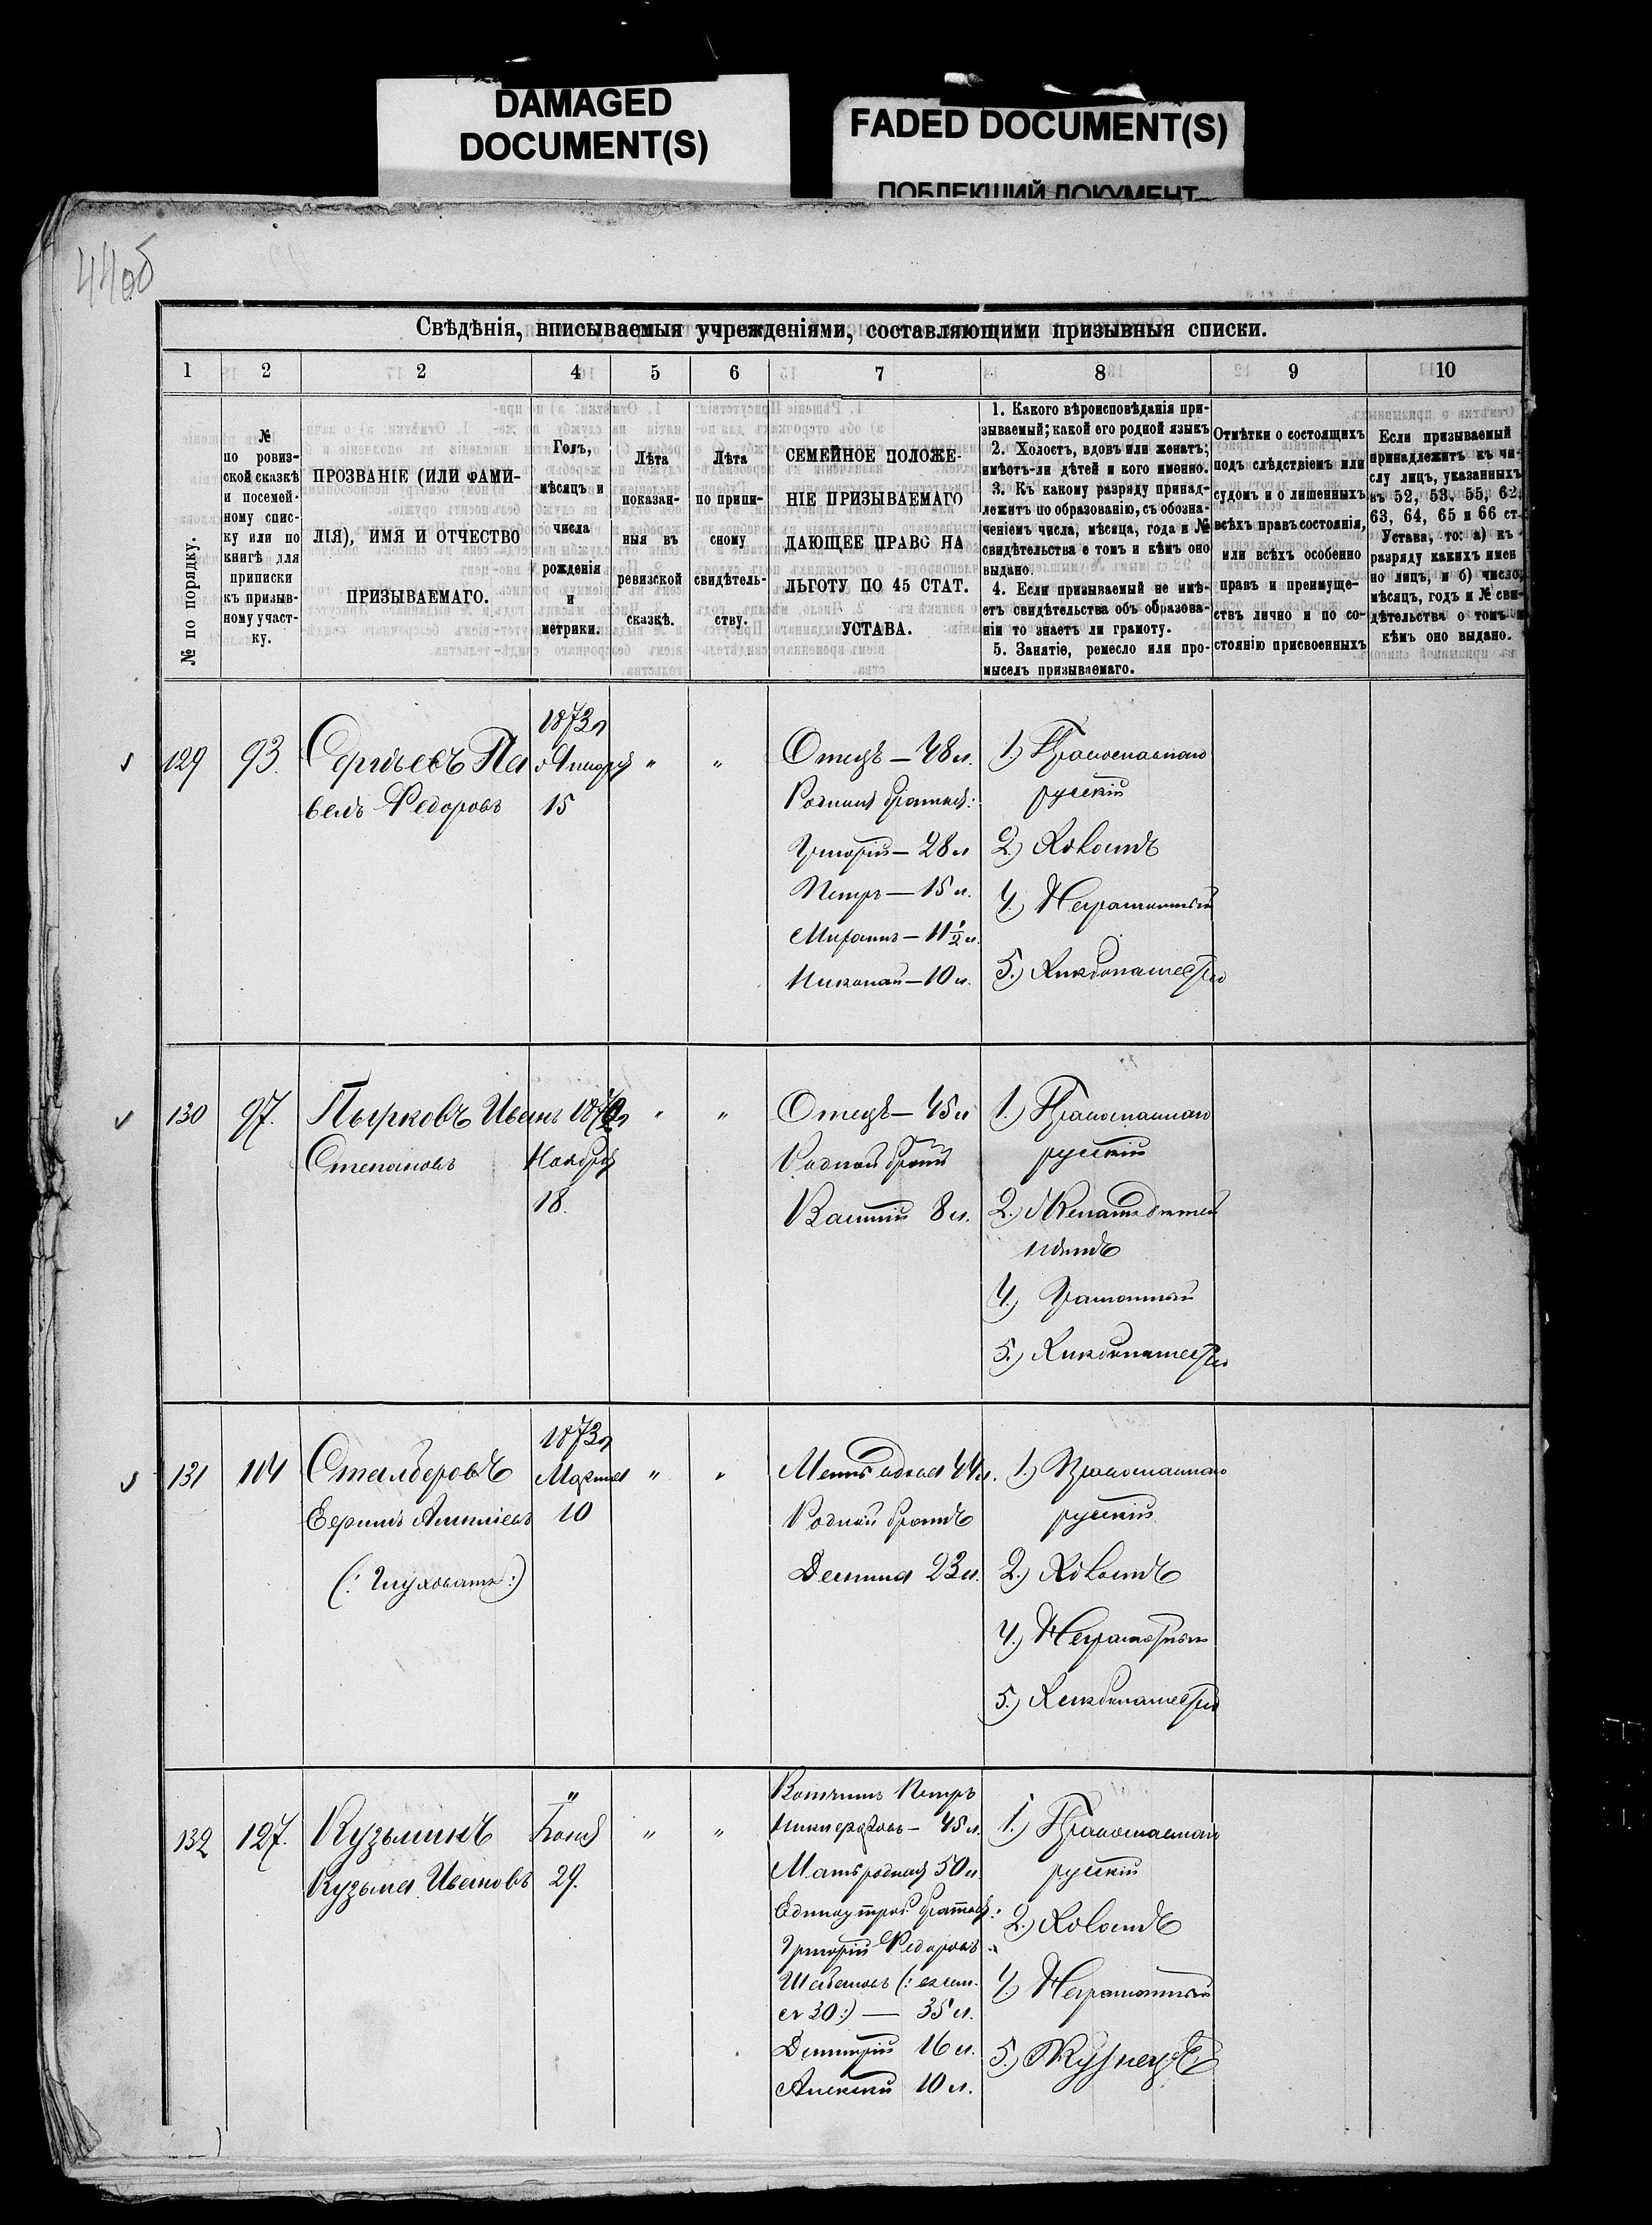 DAMAGED
DOCUMENT(S)
FADED DOCUMENT(S)
ПОБЛЕКШИЙ ДОКУМЕНТ
44об
Свѣдѣнія, вписываемыя учрежденіями, составляющими призывныя списки.
1 2 2 4 5 6 7 8 9 10
№ по порядку.
№
по ровиз-
ской сказкѣ
и посемей-
ному спис-
ку или по
книгѣ для
приписки
къ призыв-
ному участ-
ку.
ПРОЗВАНІЕ (ИЛИ ФАМИ-
ЛІЯ), ИМЯ И ОТЧЕСТВО
ПРИЗЫВАЕМАГО.
Годъ,
мѣсяцъ и
числа
рожденія
и
метрики.
Лѣта
показан-
ныя въ
ревизской
сказкѣ.
Лѣта
по припи-
сному
свидѣтель-
ству.
СЕМЕЙНОЕ ПОЛОЖЕ-
НІЕ ПРИЗЫВАЕМАГО
ДАЮЩЕЕ ПРАВО НА
ЛЬГОТУ ПО 45 СТАТ.
УСТАВА.
1. Какого вѣроисповѣданія при-
зываемый; какой его родной языкъ
2. Холостъ, вдовъ или женатъ;
имѣетъ-ли дѣтей и кого именно.
3. Къ какому разряду принад-
лежитъ по образованію, съ обозна-
ченіемъ числа, мѣсяца, года и №
свидѣтельства о томъ и кѣмъ оно
выдано.
4. Если призываемый не имѣ-
етъ свидѣтельства объ образова-
ніи то знаетъ ли грамоту.
5. Занятіе, ремесло или про-
мыселъ призываемаго.
Отмѣтки о состоящихъ
подъ слѣдствіемъ или
судомъ и о лишенныхъ
всѣхъ правъ состоянія,
или всѣхъ особенно
правъ и преимуще-
ствъ лично и по со-
стоянію присвоенныхъ
Если призываемый
принадлежитъ къ чи-
слу лицъ, указанныхъ
въ 52, 53, 55, 62,
63, 64, 65 и 66 ст.
Устава, то: а) къ
разряду какихъ имен
но лицъ, и б) число,
мѣсяцъ, годъ и № сви-
дѣтельства о томъ и
кѣмъ оно выдано.
129 93.
Сергѣевъ Па
велъ Федоровъ
1873 г
Января
15
" "
Отецъ — 48 л.
Родные братья:
Григорій — 28 л
Петръ — 15 л.
— 11½ л.
Николай — 10 л.
1.) Православнаго
русскій
2.) Холостъ
4.) Неграмотный
5.) Хлѣбопашество
130 97.
Пырковъ Иванъ
Степановъ
1872 г
Ноября
18.
" "
Отецъ — 45 л
Родной братъ
Василій 8 л.
1.) Православнаго
русскій
2.) Женатъ дѣтей
нѣтъ
4.) Грамотный
5.) Хлѣбопашество
131 114
Ефимъ
(: Глуховатъ :)
1873 г
Марта
10
" "
Мать вдова 44 л.
Родной братъ
23 л.
1.) Православнаго
русскій
2.) Холостъ
4.) Неграмотный
5.) Хлѣбопашество
132 127.
Кузьминъ
Кузьма Ивановъ
"
Іюня
29.
" "
Вотчимъ Петръ
Никифоровъ — 45 л.
Мать родная 50 л
Единоутроб. братья:
Григорій Федоровъ
30 :) — 35 л.
Дмитрій 16 л.
Алексѣй 10 л.
1.) Православнаго
русскій
2.) Холостъ
4.) Неграмотный
5.) Кузнецъ